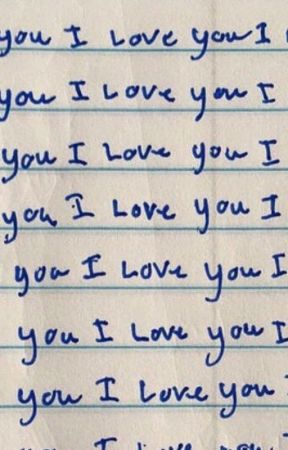 you I Love you I
you I Love you I
you I Love you I
you I Love you I
you I Love you I
you I Love you I
you I Love you
you I Love you I